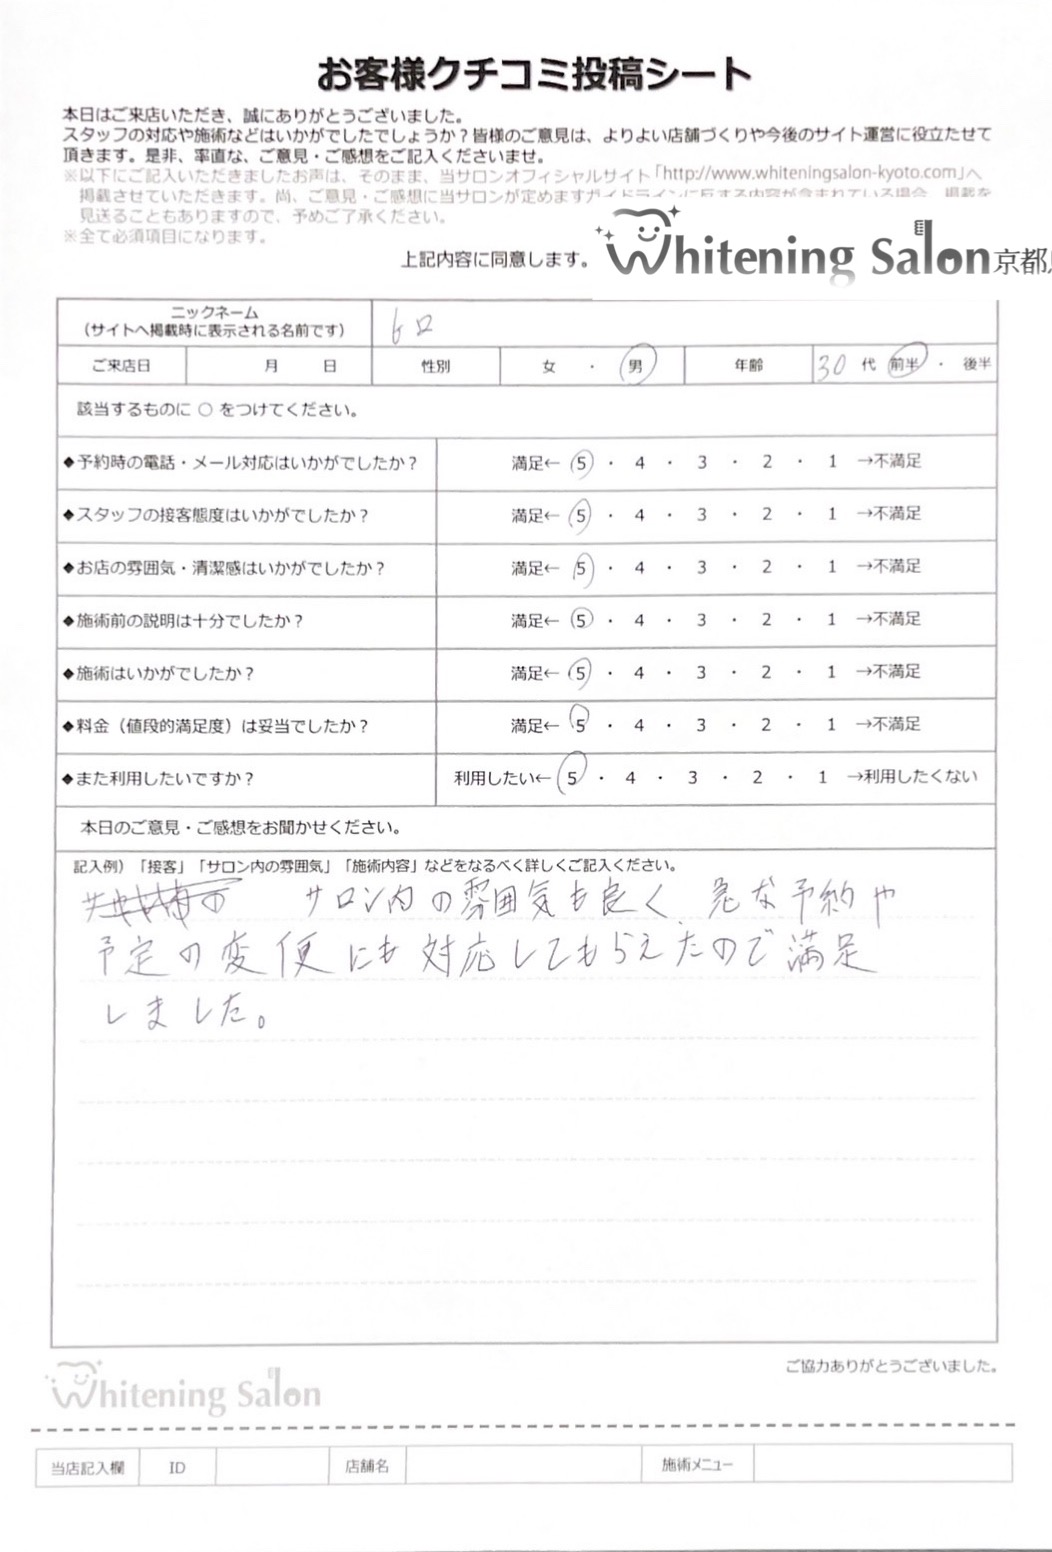 お客様クチコミ投稿シート
本日はご来店いただき、誠にありがとうございました。
スタッフの対応や施術などはいかがでしたでしょうか？皆様のご意見は、よりよい店舗づくりや今後のサイト運営に役立たせて
頂きます。是非、率直な、ご意見・ご感想をご記入くださいませ。
※以下にご記入いただきましたお声は、そのまま、当サロンオフィシャルサイト「http://www.whiteningsalon-kyoto.com」へ
掲載させていただきます。尚、ご意見・ご感想に当サロンが定めますガイドラインに反する内容が含まれている場合、掲載を
見送ることもありますので、予めご了承ください。
※全て必須項目になります。
上記内容に同意します。 Whitening Salon京都
ニックネーム
（サイトへ掲載時に表示される名前です） ヒロ
ご来店日 月 日 性別 女 ・ 男 年齢 30 代 前半 ・ 後半
該当するものに ○ をつけてください。
◆予約時の電話・メール対応はいかがでしたか？ 満足← 5 ・ 4 ・ 3 ・ 2 ・ 1 →不満足
◆スタッフの接客態度はいかがでしたか？ 満足← 5 ・ 4 ・ 3 ・ 2 ・ 1 →不満足
◆お店の雰囲気・清潔感はいかがでしたか？ 満足← 5 ・ 4 ・ 3 ・ 2 ・ 1 →不満足
◆施術前の説明は十分でしたか？ 満足← 5 ・ 4 ・ 3 ・ 2 ・ 1 →不満足
◆施術はいかがでしたか？ 満足← 5 ・ 4 ・ 3 ・ 2 ・ 1 →不満足
◆料金（値段的満足度）は妥当でしたか？ 満足← 5 ・ 4 ・ 3 ・ 2 ・ 1 →不満足
◆また利用したいですか？ 利用したい← 5 ・ 4 ・ 3 ・ 2 ・ 1 →利用したくない
本日のご意見・ご感想をお聞かせください。
記入例）「接客」「サロン内の雰囲気」「施術内容」などをなるべく詳しくご記入ください。
サロン内の雰囲気も良く、急な予約や
予定の変便にも対応してもらえたので満足
しました。
ご協力ありがとうございました。
Whitening Salon
当店記入欄 ID 店舗名 施術メニュー